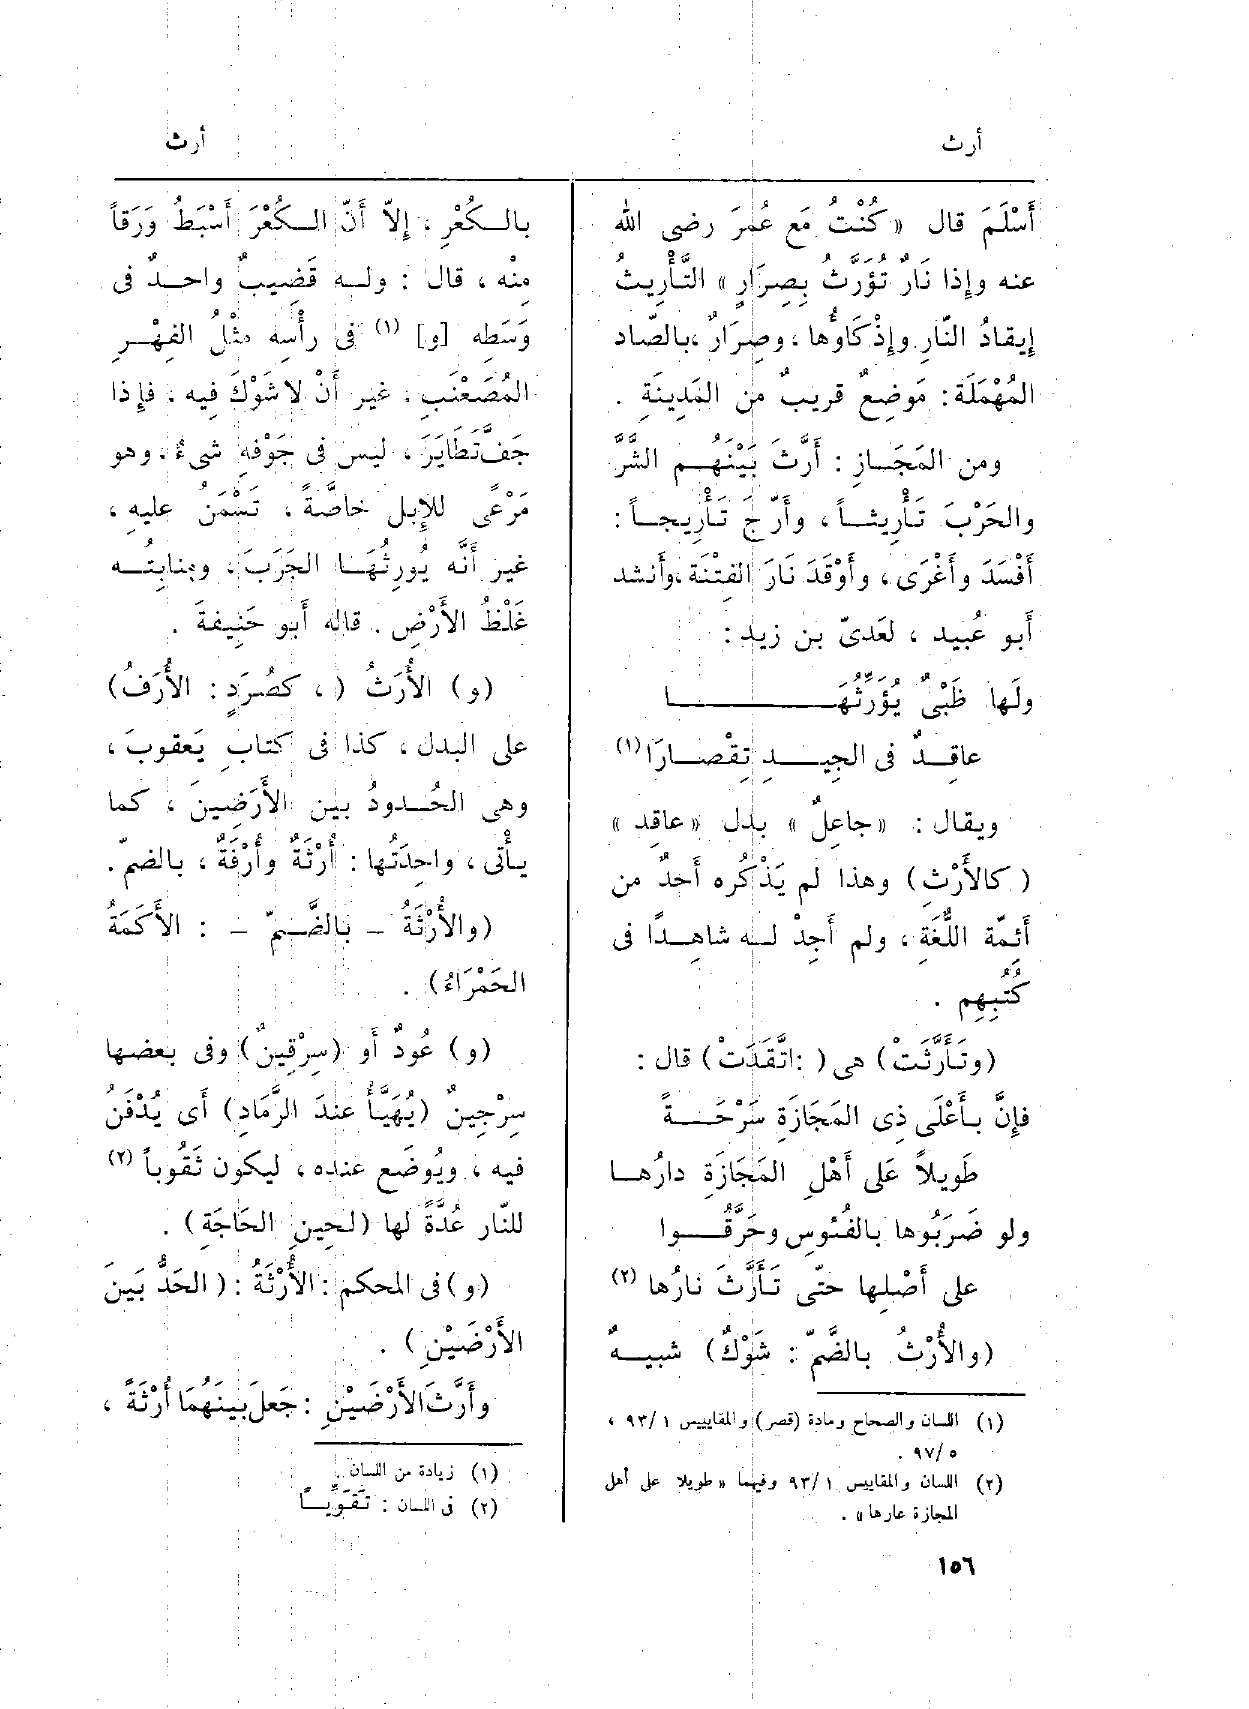 أرث
أرث
أَسْلَمَ قال «كُنْتُ مَع عُمَرَ رضى الله
عنه وإذا نَارٌ تُؤَرَّثُ بِصِرَارٍ» التَّأْرِيثُ
إيقادُ النّارِ وإذْكَاؤُها ، وصِرَارٌ ، بالصّاد
المُهْمَلَة : مَوضِعٌ قريبٌ من المَدِينَةِ .
ومن المَجَازِ : أَرَّثَ بَيْنَهُم الشَّرَّ
والحَرْبَ تَأْرِيثاً ، وأَرَّجَ تَأْرِيجاً :
أَفْسَدَ وأَغْرَى ، وأَوْقَدَ نَارَ الفِتْنَة ، وأَنشد
أَبو عُبيد ، لعَدىّ بن زيد :
ولَها ظَبْىٌ يُؤَرِّثُهَا
عاقِدٌ فى الجِيدِ تِقْصَارَا (١)
ويقال : «جاعلٌ» بدل «عاقد»
(كالأَرْثِ) وهذا لم يَذْكُره أَحدٌ من
أَئمّة اللُّغَةِ ، ولم أَجِدْ له شاهِدًا فى
كُتُبِهِم .
(وتَأَرَّثَتْ) هى ( : اتَّقَدَتْ) قال :
فإِنَّ بأَعْلَى ذِى المَجَازَةِ سَرْحَةً
طَوِيلاً عَلَى أَهْلِ المَجَازَةِ دارُها
ولو ضَرَبُوها بالفُئُوسِ وحَرَّقُوا
على أَصْلِها حتّى تَأَرَّثَ نارُها (٢)
(والأُرْثُ بالضَّمّ : شَوْكٌ) شبيهٌ
(١) اللسان والصحاح ومادة (قصر) والمقاييس ١/ ٩٣ ،
٥/ ٩٧ .
(٢) اللسان والمقاييس ١/ ٩٣ وفيهما «طويلا على أهل
المجازة عارها» .
بالكُعْرِ ، إِلاّ أَنّ الكُعْرَ أَسْبَطُ وَرَقاً
مِنْه ، قال : وله قَضِيبٌ واحدٌ فى
وَسَطِه [و] (١) فى رأْسِه مثْلُ الفِهْرِ
المُصَعْنَبِ ، غير أَنْ لا شَوْكَ فيه ، فإِذا
جَفَّ تَطَايَرَ ، ليس فى جَوْفِه شىءٌ ، وهو
مَرْعًى للإِبل خاصَّةً ، تَسْمَنُ عليه ،
غير أَنَّه يُورِثُهَا الجَرَبَ ، ومنابِتُه
غَلْظُ الأَرْضِ . قاله أَبو حَنِيفةَ .
(و) الأُرَثُ ( ، كصُرَدٍ : الأُرَفُ)
على البدل ، كذا فى كتابِ يَعقوبَ ،
وهى الحُدودُ بين الأَرَضِينَ ، كما
يأْتى ، واحِدَتُها : أُرْثَةٌ وأُرْفَةٌ ، بالضمّ .
(والأُرْثَةُ – بالضَّمّ – : الأَكَمَةُ
الحَمْرَاءُ) .
(و) عُودٌ أَو (سِرْقِينٌ) وفى بعضها
سِرْجِينٌ (يُهَيَّأُ عندَ الرَّمَادِ) أَى يُدْفَنُ
فيه ، ويُوضَع عنده ، ليكون ثَقُوباً (٢)
للنّار عُدَّةً لها (لحِينِ الحَاجَةِ) .
(و) فى المحكم : الأُرْثَةُ : (الحَدُّ بَينَ
الأَرْضَيْنِ) .
وأَرَّثَ الأَرْضَيْنِ : جَعَلَ بينَهُمَا أُرْثَةً ،
(١) زيادة من اللسان .
(٢) فى اللسان : تَقَوِّيًا
١٥٦